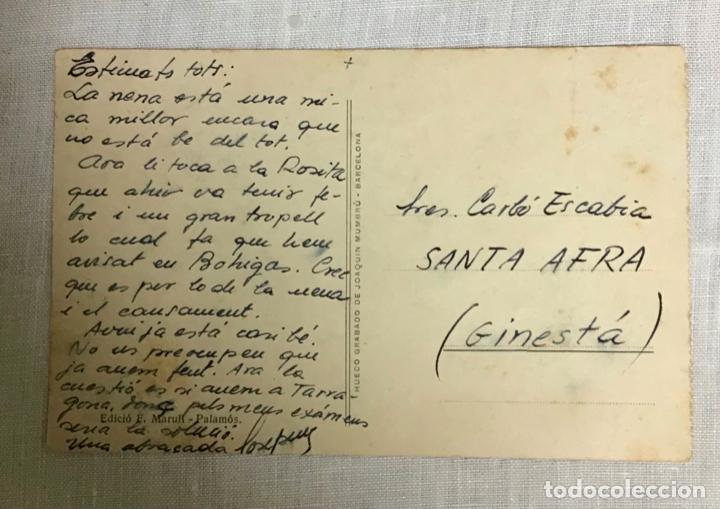 Estimats tots:
La nena está una mi-
ca millor encara que
no está be del tot.
Ara li toca a la Rosita
que ahir va tenir fe-
bre i un gran tropell
lo cual fa que hem
avisat en Bohigas. Crec
que es por lo de la nena
i el cansament.
Avui ja está casi bé.
No us preocupeu que
ja anem fent. Ara la
cuestió es si anem a Tarra
gona, donc pels meus exámens
seria la solució.
Una abraçada Josep
Edició E. Marull - Palamós.
HUECO GRABADO DE JOAQUIN MUMBRÚ - BARCELONA
Sres. Carbó Escabia
SANTA AFRA
(Ginestá)
todocoleccion.net